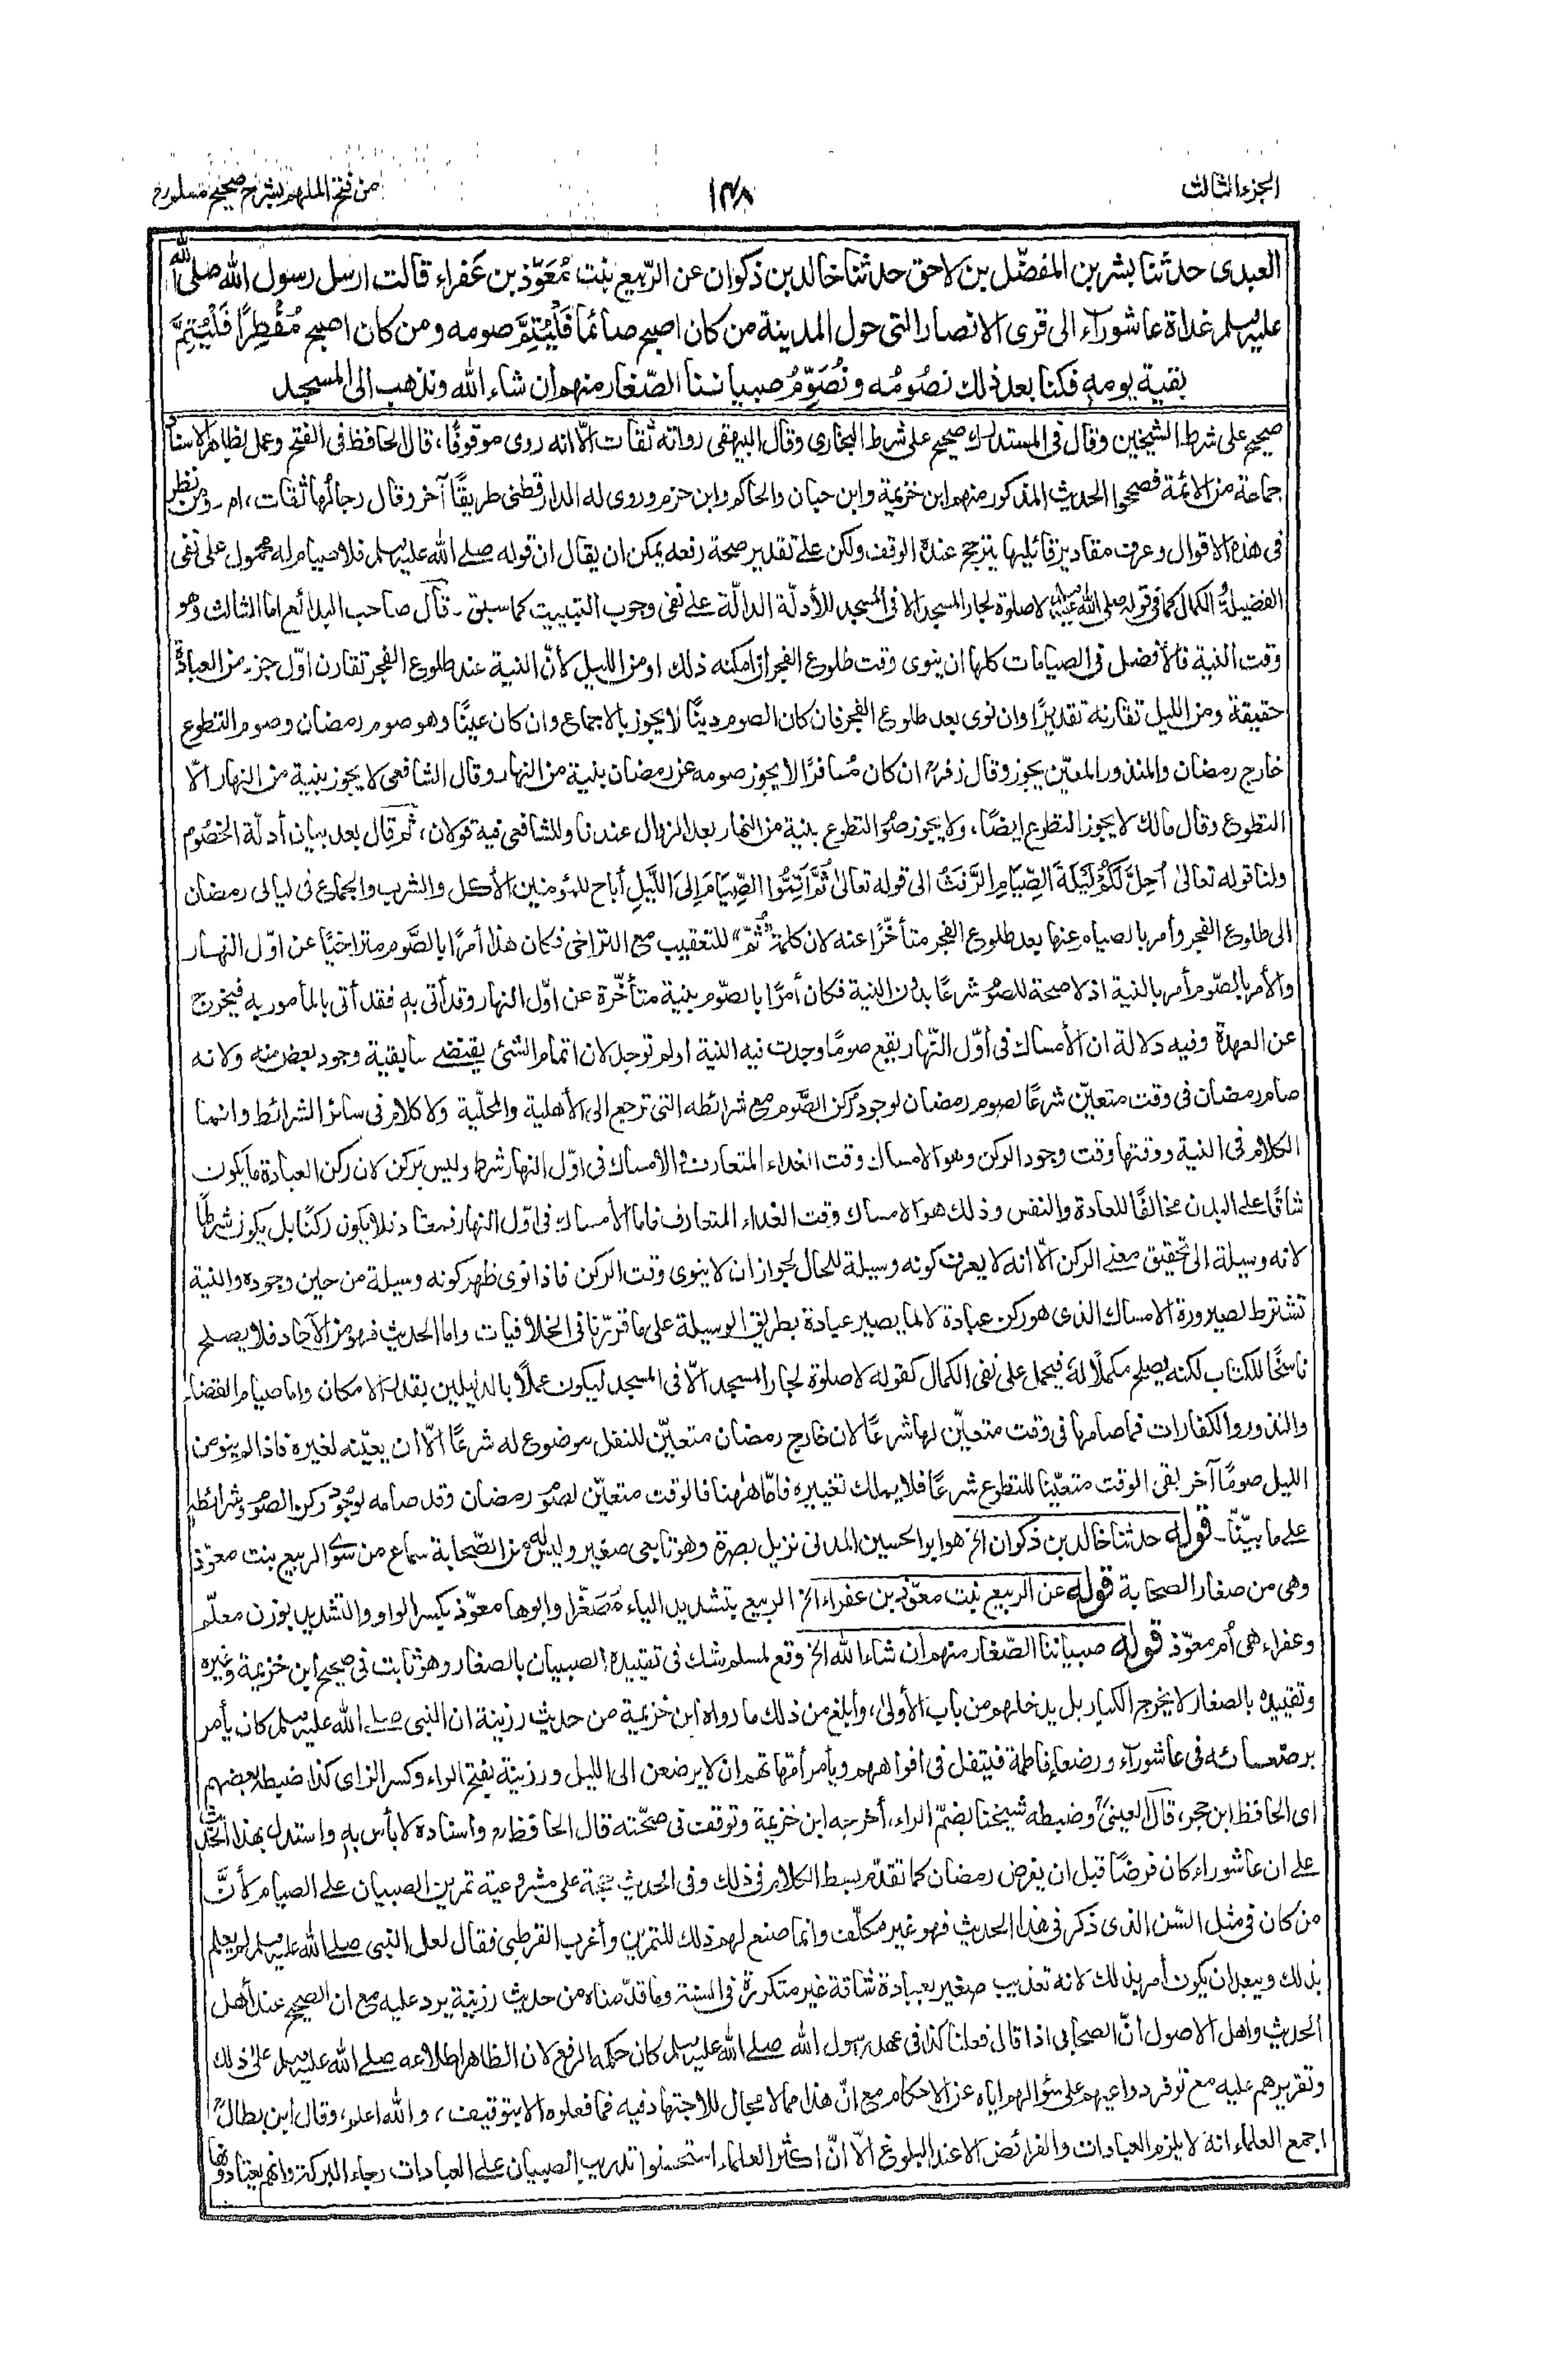 الجزء الثالث
١٤٨
من فتح الملهم بشرح صحيح مسلم ج
العبدى حدثنا بشر بن المفضّل بن لاحق حدثنا خالد بن ذكوان عن الرّبيع بنت مُعَوّذ بن عَفراء قالت ارسل رسول الله صلى الله
عليه وسلم غداة عاشوراء الى قرى الانصار التى حول المدينة من كان اصبح صائما فَلْيُتِمَّ صومه ومن كان اصبح مُفْطِرًا فَلْيُتِمَّ
بقية يومه فكنا بعد ذلك نصُومُه ونُصَوِّمُ صبياننا الصّغار منهم ان شاء الله ونذهب الى المسجد
صحيح على شرط الشيخين وقال فى المستدرك صحيح على شرط البخارى وقال البيهقى رواته ثقات الّا انه روى موقوفًا، قال الحافظ فى الفتح وعمل بظاهر الاسناد
جماعة من الائمة فصححوا الحديث المذكور منهم ابن خزيمة وابن حبان والحاكم وابن حزم وروى له الدارقطنى طريقًا آخر وقال رجالها ثقات، اه - ومن نظر
فى هذه الاقوال وعرف مقادير قائليها يترجح عنده الوقف ولكن على تقدير صحة رفعه يمكن ان يقال ان قوله صلى الله عليه وسلم فلا صيام له محمول على نفى
الفضيلة والكمال كما فى قوله صلى الله عليه وسلم لا صلوة لجار المسجد الا فى المسجد للأدلّة الدالّة على نفى وجوب التبييت كما سبق - قال صاحب البدائع اما الثالث وهو
وقت النية فالأفضل فى الصيامات كلها ان ينوى وقت طلوع الفجر ان امكنه ذلك او من الليل لأنّ النية عند طلوع الفجر تقارن اوّل جزء من العبادة
حقيقة ومن الليل تقارنه تقديرًا وان نوى بعد طلوع الفجر فان كان الصوم دينًا لا يجوز بالاجماع وان كان عينًا وهو صوم رمضان وصوم التطوع
خارج رمضان والمنذور المعيّن يجوز وقال زفرؒ ان كان مُسافرًا لا يجوز صومه عن رمضان بنية من النهار وقال الشافعى لا يجوز بنية من النهار الّا
التطوع وقال مالك لا يجوز التطوع ايضًا، ولا يجوز صوم التطوع بنية من النهار بعد الزوال عندنا وللشافعى فيه قولان، ثم قال بعد بيان أدلّة الخصُوم
ولنا قوله تعالىٰ اُحِلَّ لَكُمْ لَيْلَةَ الصِّيَامِ الرَّفَثُ الى قوله تعالىٰ ثُمَّ اَتِمُّوا الصِّيَامَ اِلَى اللَّيْلِ أباح للمؤمنين الأكل والشرب والجماع فى ليالى رمضان
الى طلوع الفجر وأمر بالصيام عنها بعد طلوع الفجر متأخّرًا عنه لان كلمة "ثُمّ" للتعقيب مع التراخى فكان هذا أمرًا بالصَّوم متراخيًا عن اوّل النهار
والأمر بالصّوم أمر بالنية اذ لا صحة للصوم شرعًا بدون النية فكان أمرًا بالصّوم بنية متأخّرة عن اوّل النهار وقد أتى به فقد أتى بالمأمور به فيخرج
عن العهدة وفيه دلالة ان الأمساك فى أوّل النّهار يقع صومًا وجدت فيه النية او لم توجد لان اتمام الشئ يقتضى سابقية وجود بعض منه ولانه
صام رمضان فى وقت متعيّن شرعًا لصوم رمضان لوجود ركن الصَّوم مع شرائطه التى ترجع الى الأهلية والمحلّية ولا كلام فى سائر الشرائط وانما
الكلام فى النية ووقتها وقت وجود الركن وهو الامساك وقت الغداء المتعارف والأمساك فى اوّل النهار شرط وليس بركن لان ركن العبادة ما يكون
شاقًا على البدن مخالفًا للعادة والنفس وذلك هو الامساك وقت الغداء المتعارف فاما الأمساك فى اوّل النهار فمعتاد فلا يكون ركنًا بل يكون شرطًا
لانه وسيلة الى تحقيق معنى الركن الّا انه لا يعرف كونه وسيلة للحال لجواز ان لا ينوى وقت الركن فاذا نوى ظهر كونه وسيلة من حين وجوده والنية
تشترط لصيرورة الامساك الذى هو ركن عبادة لا لما يصير عبادة بطريق الوسيلة على ما قرّرنا فى الخلافيات واما الحديث فهو من الآحاد فلا يصلح
ناسخًا للكتاب لكنه يصلح مكملًا له فيحمل على نفى الكمال كقوله لا صلوة لجار المسجد الّا فى المسجد ليكون عملًا بالدليلين بقدر الامكان واما صيام القضاء
والنذور والكفارات فما صامها فى وقت متعيّن لها شرعًا لان خارج رمضان متعيّن للنفل موضوع له شرعًا الّا أن يعيّنه لغيره فاذا لم ينو من
الليل صومًا آخر بقى الوقت متعيّنا للتطوع شرعًا فلا يملك تغييره فامّا ههنا فالوقت متعيّن لصوم رمضان وقد صامه لوجود ركن الصوم وشرائطه
على ما بيّنّا - قوله حدثنا خالد بن ذكوان الخ هو ابو الحسين المدنى نزيل بصرة وهو تابعى صغير وليس له من الصّحابة سماع من سوى الربيع بنت معوّذ
وهى من صغار الصحابة قوله عن الربيع بنت معوّذ بن عفراء الخ الربيع بتشديد الياء مُصَغَّرا وابوها معوّذ بكسر الواو والتشديد بوزن معلّم
وعفراء هى أم معوّذ قوله صبياننا الصّغار منهم ان شاء الله الخ وقع لمسلم شك فى تقييده الصبيان بالصغار وهو ثابت فى صحيح ابن خزيمة وغيره
وتقييده بالصغار لا يخرج الكبار بل يدخلهم من باب الأولىٰ، وأبلغ من ذلك ما رواه ابن خزيمة من حديث رزينة ان النبى صلى الله عليه وسلم كان يأمر
برضعائه فى عاشوراء ورضعاء فاطمة فيتفل فى افواههم ويأمر أمّهاتهم ان لا يرضعن الى الليل ورزينة بفتح الراء وكسر الزاى كذا ضبطه بعضهم
اى الحافظ ابن حجر، قال العينىؒ وضبطه شيخنا بضمّ الراء، أخرجه ابن خزيمة وتوقف فى صحّته قال الحافظؒ واسناده لا بأس به واستدل بهذا الحديث
على ان عاشوراء كان فرضًا قبل ان يفرض رمضان كما تقدّم بسط الكلام فى ذلك وفى الحديث حجة على مشروعية تمرين الصبيان على الصيام كأنَّ
من كان فى مثل السّن الذى ذكر فى هذا الحديث فهو غير مكلّف وانما صنع لهم ذلك للتمرين وأغرب القرطبى فقال لعل النبى صلى الله عليه وسلم لم يعلم
بذلك ويبعد ان يكون أمر بذلك لانه تعذيب صغير بعبادة شاقة غير متكررة فى السنة وما قدّمناه من حديث رزينة يرد عليه مع ان الصحيح عند أهل
الحديث واهل الاصول انّ الصحابى اذا قال فعلنا كذا فى عهد رسول الله صلى الله عليه وسلم كان حكمه الرفع لان الظاهر اطلاعه صلى الله عليه وسلم على ذلك
وتقريرهم عليه مع توفر دواعيهم على سؤالهم اياه عن الاحكام مع انّ هذا مما لا مجال للاجتهاد فيه فما فعلوه الا بتوقيف، والله اعلم، وقال ابن بطالؒ
اجمع العلماء انه لا يلزم العبادات والفرائض الا عند البلوغ الّا انّ اكثر العلماء استحسنوا تدريب الصبيان على العبادات رجاء البركة وانهم يعتادونها